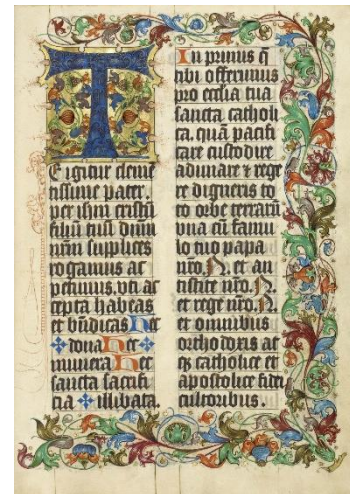 T
E igitur cleme
tissime pater.
per ihm cristū
filiū tuū dnm
nrm supplices
rogamus ac
petimus. vti ac
cepta habeas
et bn̄dicas Hec
✠ dona Hec ✠
munera Hec
sancta sacrifi
cia ✠ illibata.
In primis q̄
tibi offerimus
pro ecclia tua
sancta catholi
ca. quā pacifi
care custodire
adunare ⁊ rege
re digneris to
to orbe terrarū
vna cū famu
lo tuo papa
nr̄o. N. et an
tistite nr̄o. N.
et rege nr̄o. N.
et omnibus
orthodoxis at
q̢ catholice et
apostolice fidei
cultoribus.